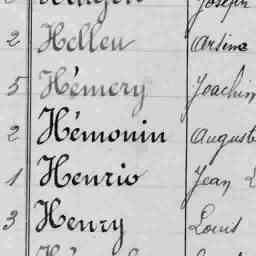 Joseph
2 Helleu Arsène
5 Hémery Joachim
2 Hémonin Auguste
1 Henrio Jean
3 Henry Louis